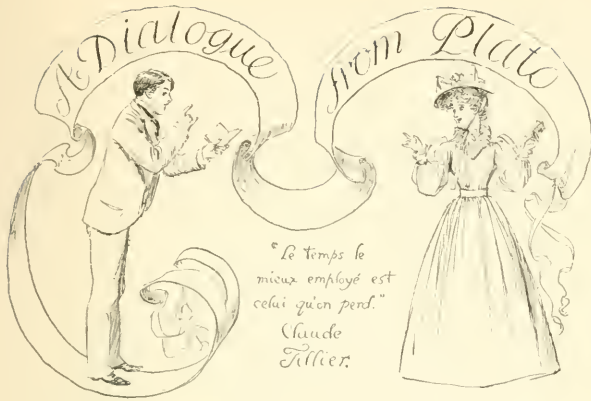 A Dialogue
from Plato
"Le temps le
mieux employé est
celui qu'on perd."
Claude
Tillier.